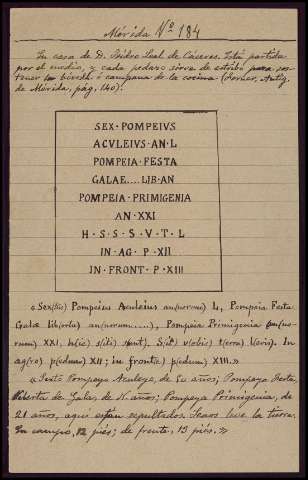 Mérida Nº 184
En casa de D. Isidro Leal de Cáceres. Está partida
por el medio, y cada pedazo sirve de estribo para sos-
tener la bóveda ó campana de la cocina (Forner, Antig.
de Mérida, pág. 140).
SEX·POMPEIVS
ACVLEIVS·AN·L
POMPEIA·FESTA
GALAE....LIB·AN
POMPEIA·PRIMIGENIA
AN·XXI
H·S·S·S·V·T·L
IN·AG·P·XII
IN·FRONT·P·XIII
«Sex(tus) Pompeius Aculeius an(norum) L, Pompeia Festa
Galae lib(erta) an(norum.....), Pompeia Primigenia an(no-
rum) XXI, h(ic) s(iti) s(unt). S(it) v(obis) t(erra) l(evis). In
ag(ro) p(edum) XII; in front(e) p(edum) XIII.»
«Sexto Pompeyo Aculeyo, de 50 años; Pompeya Festa
liberta de Gala, de X. años; Pompeya Primigenia, de
21 años, aquí están sepultados. Seaos leve la tierra.
En campo, 12 piés; de frente, 13 piés.»